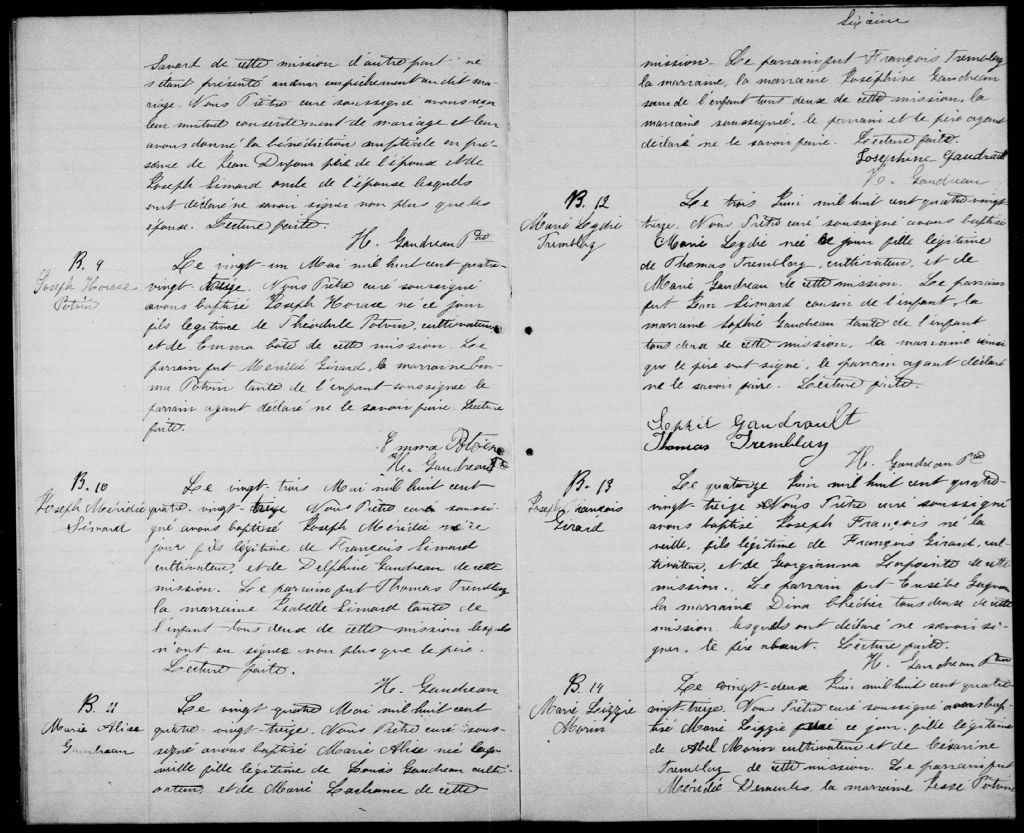 Savard de cette mission d'autre part ne
s'étant présenté aucun empêchement au dit ma-
riage. Nous Prêtre curé soussigné avons reçu
leur mutuel consentement de mariage et leur
avons donné la bénédiction nuptiale en pré-
sence de Jean Dufour père de l'épouse et de
Joseph Simard oncle de l'épouse lesquels
ont déclaré ne savoir signer non plus que les
épouse. Lecture faite.
H. Gaudreau Ptre
B. 9
Joseph Horace
Potvin
Le vingt-un Mai mil huit cent quatre-
vingt-treize. Nous Prêtre curé soussigné
avons baptisé Joseph Horace né ce jour
fils légitime de Théodule Potvin, cultivateur
et de Emma Coté de cette mission. Le
parrain fut Méridé Girard, la marraine Em-
ma Potvin tante de l'enfant soussigné le
parrain ayant déclaré ne le savoir faire. Lecture
faite.
Emma Potvin
H. Gaudreau Ptre
B. 10
Joseph Méridé
Simard
Le vingt-trois Mai mil huit cent
quatre-vingt-treize Nous Prêtre curé soussi-
gné avons baptisé Joseph Méridé né ce
jour fils légitime de François Simard
cultivateur, et de Delphine Gaudreau de cette
mission. Le parrain fut Thomas Tremblay
la marraine Isabelle Simard tante de
l'enfant tous deux de cette mission lesquels
n'ont su signer non plus que le père.
Lecture faite.
H. Gaudreau
B. 11
Marie Alice
Gaudreau
Le vingt quatre Mai mil huit cent
quatre-vingt-treize. Nous Prêtre curé sous-
signé avons baptisé Marie Alice née la
veille fille légitime de Louis Gaudreau culti-
vateur, et de Marie Lachance de cette
Sixième
mission. Le parrain fut François Tremblay
la marraine, la marraine Joséphine Gaudreau
de l'enfant tous deux de cette mission, la
marraine soussignée, le parrain et le père ayant
déclaré ne le savoir faire. Lecture faite.
Josephine Gaudreault
H. Gaudreau
B. 12
Marie Lydie
Tremblay
Le trois Juin mil huit cent quatre vingt
treize. Nous Prêtre curé soussigné avons baptisé
Marie Lydie née ce jour fille légitime
de Thomas Tremblay, cultivateur, et de
Marie Gaudreau de cette mission. Le parrain
fut Jean Simard cousin de l'enfant, la
marraine Sophie Gaudreau tante de l'enfant
tous deux de cette mission, la marraine ainsi
que le père ont signé, le parrain ayant déclaré
ne le savoir faire. Lecture faite.
Sophie Gaudrault
Thomas Tremblay
H. Gaudreau Ptre
B. 13
Joseph François
Girard
Le quatorze Juin mil huit cent quatre-
vingt-treize Nous Prêtre curé soussigné
avons baptisé Joseph François né la
veille, fils légitime de François Girard, cul-
tivateur, et de Georgianna Lapointe de cette
mission. Le parrain fut Eusèbe Gagnon
la marraine Dina tous deux de cette
mission lesquels ont déclaré ne savoir si-
gner, le père absent. Lecture faite.
H. Gaudreau Ptre
B. 14
Marie Lizzie
Morin
Le vingt-deux Juin mil huit cent quatre
vingt-treize. Nous Prêtre curé soussigné avons bap-
tisé Marie Lizzie née ce jour, fille légitime
de Abel Morin cultivateur et de Césarine
Tremblay de cette mission. Le parrain fut
Méridé Desmeules, la marraine Potvin